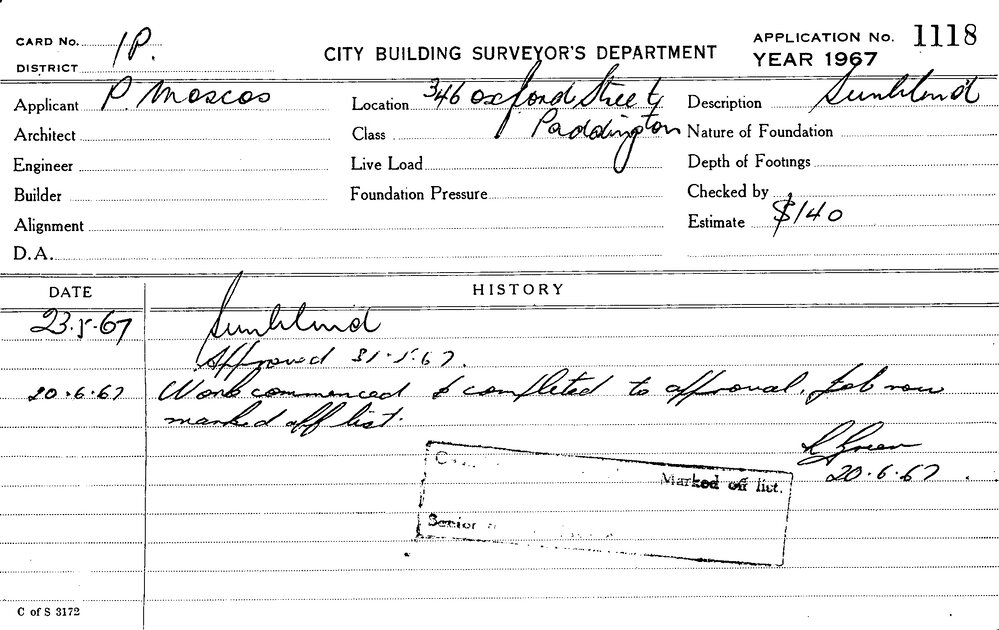 CARD No. 1P.
DISTRICT
CITY BUILDING SURVEYOR'S DEPARTMENT
APPLICATION No. 1118
YEAR 1967
Applicant P Moscos
Location 346 Oxford Street
Paddington
Description Sunblind
Architect
Class
Nature of Foundation
Engineer
Live Load
Depth of Footings
Builder
Foundation Pressure
Checked by
Alignment
Estimate $140
D.A.
DATE
HISTORY
23.5.67 Sunblind
Approved 31.5.67.
20.6.67 Work commenced & completed to approval. Job now
marked off list.
Green
20.6.67
Marked off list.
Senior
C of S 3172